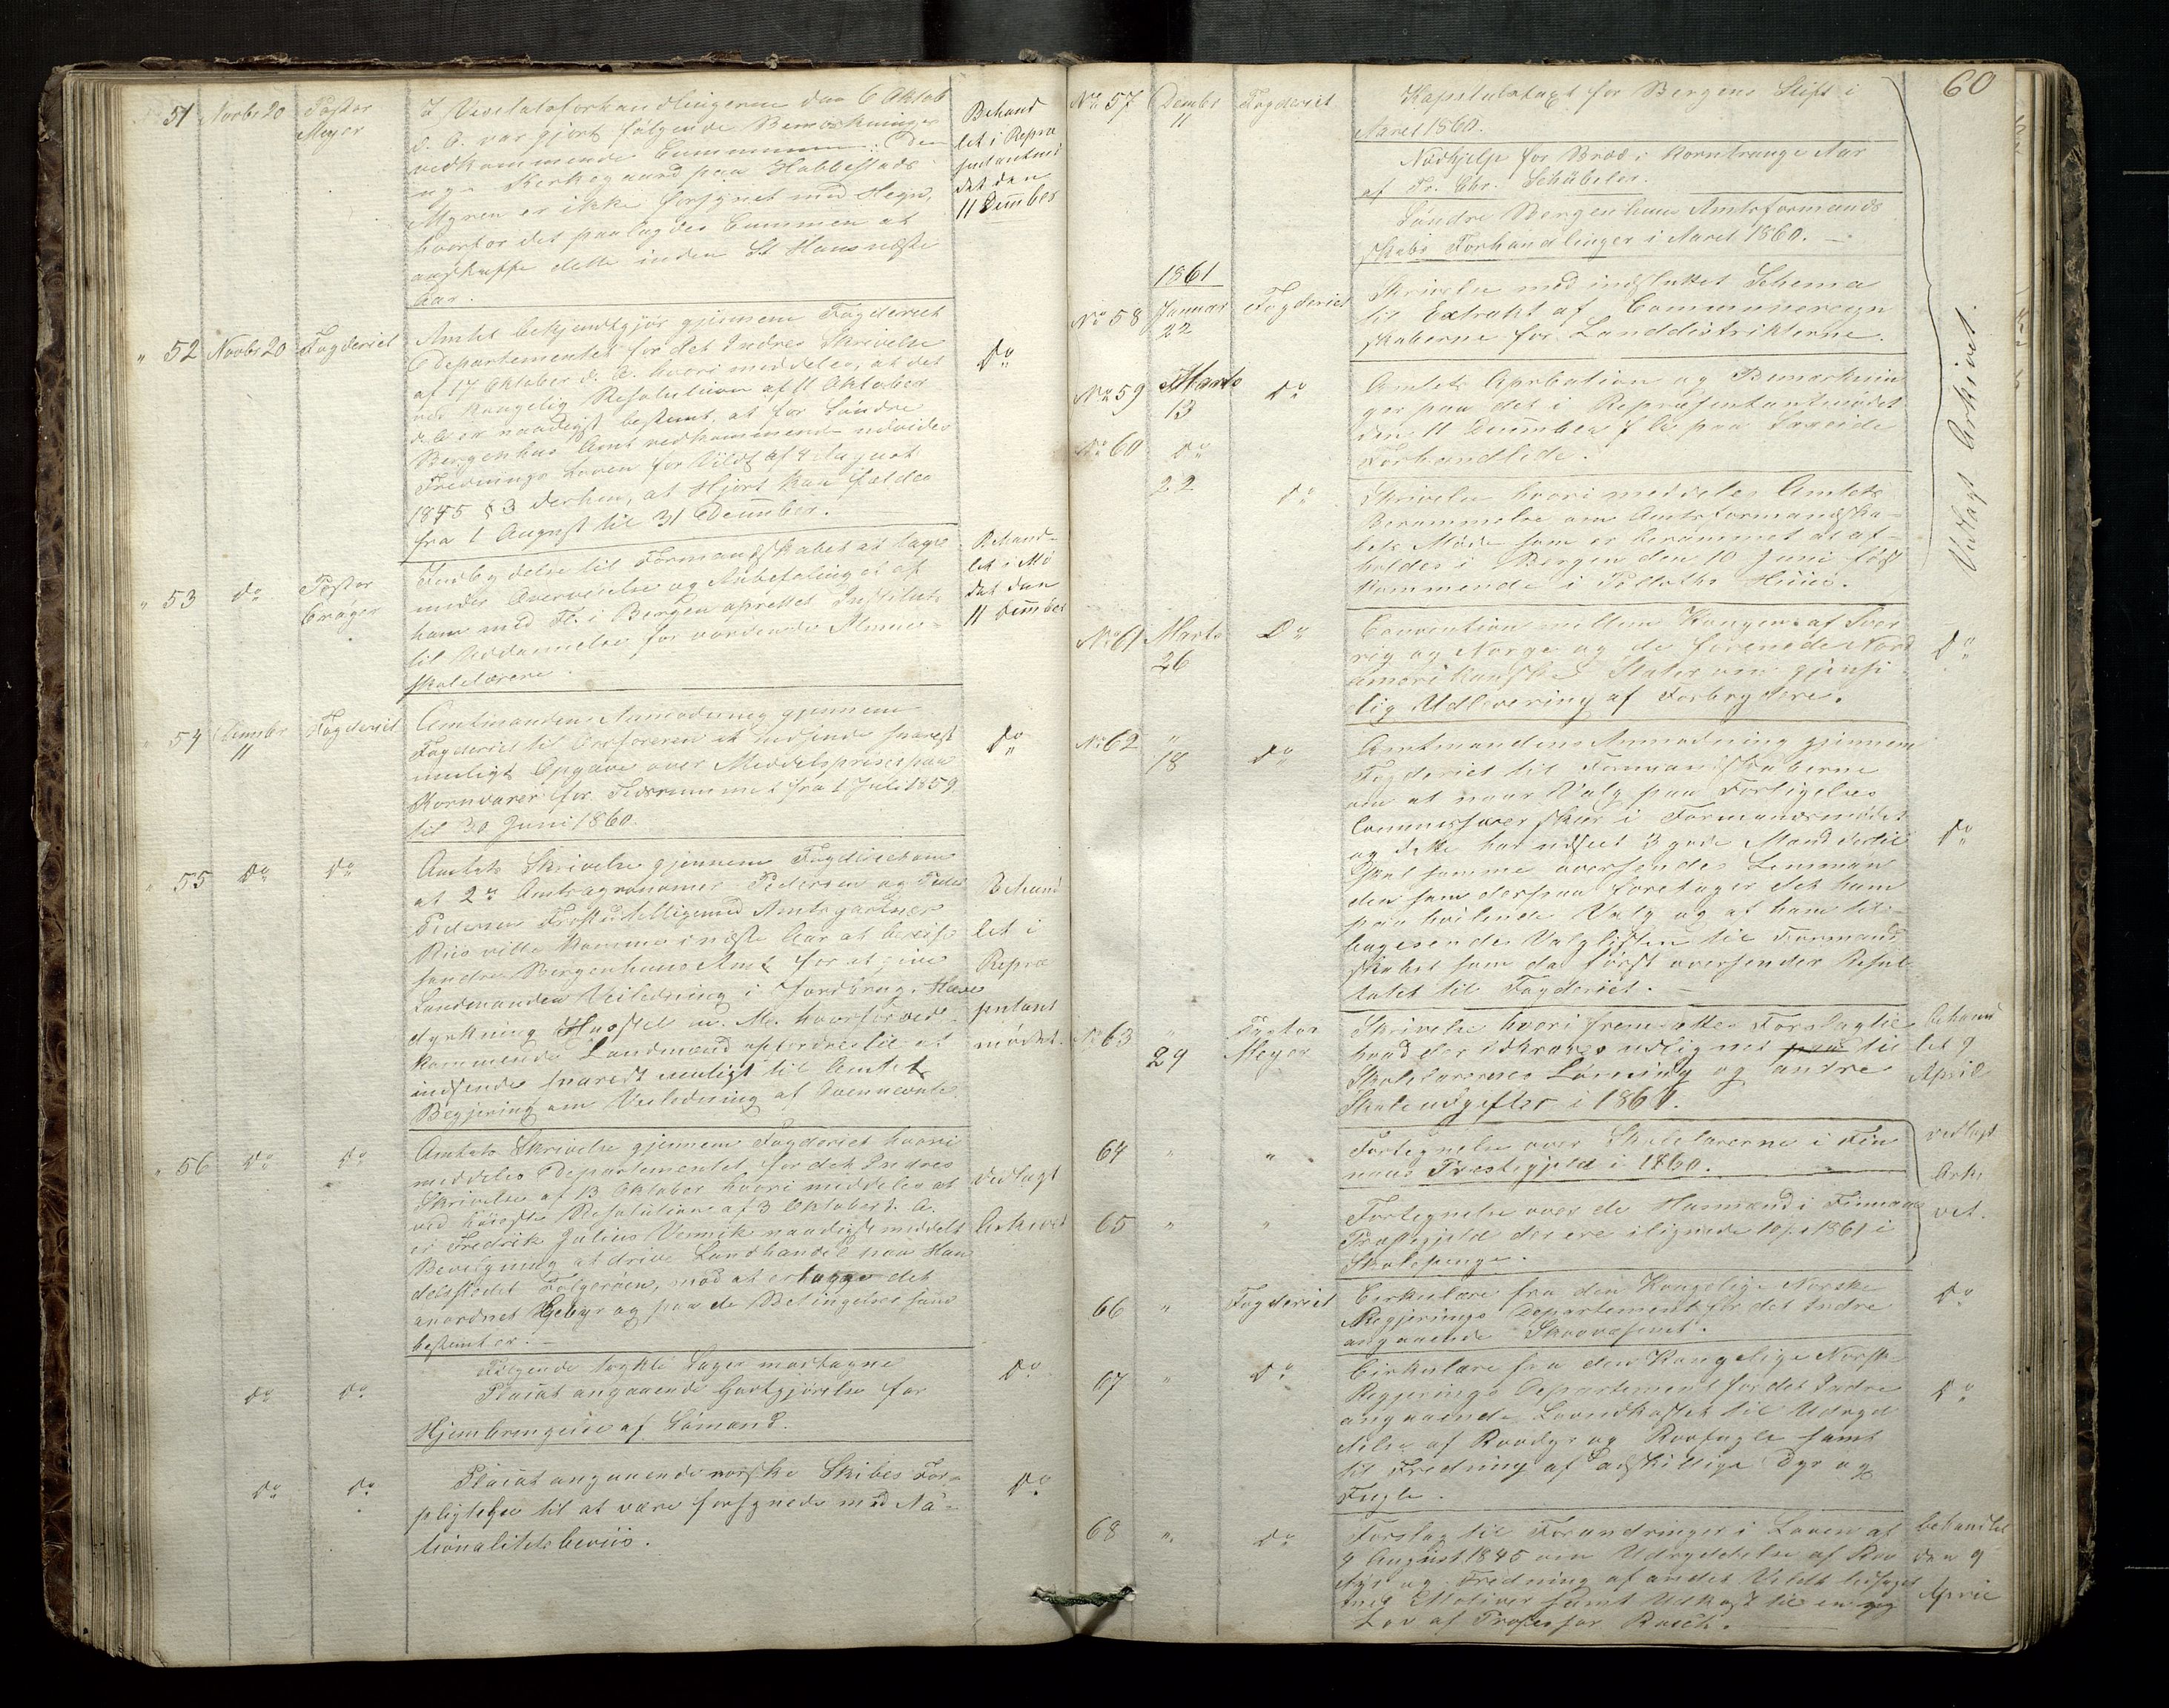 51 Novbr 20 Pastor Meyer
I Visitatsforhandlingerne den 6 Oktob
d. A. var gjort følgende Bemærkninger
vedkommende Communen: Den
nye Kirkegaard paa Habbestads
Myren er ikke forsynet med Hegn,
hvorfor det paalagdes Commen at
anskaffe dette inden St Hans næste
Aar.
Behand
let i Repræ
sentantmø
det den
11 Decembr
" 52 Novbr 20 Fogderiet
Amtet bekjendtgjør gjennem Fogderiet
Departementet for det Indres Skrivelse
af 17 Oktober d. A. hvori meddeles, at det
ved Kongelig Resolution af 11 Oktober
d. A. er naadigst bestemt, at for Søndre
Bergenhus Amt vedkommende udvides
Frednings Loven for Vildt af 4 August
1845 § 3 derhen, at Hjort kan fældes
fra 1 August til 31 December.
Do
" 53 do Pastor Crøger
Indbydelse til Formandskabet at tage
under Overveielse og Anbefaling et af
ham med Fl. i Bergen oprettet Institut
til Uddannelse for vordende Almue-
skolelærere.
Behand-
let i Mø
det den
11 Decmber
" 54 Decembr 11 Fogderiet
Amtmandens Anmodning gjennem
Fogderiet til Ordføreren at indsende snarest
muligt Opgave over Middelpriser paa
Kornvarer for Tidsrummet fra 1 Juli 1859
til 30 Juni 1860.
do
" 55 Do Do
Amtets Skrivelse gjennem Fogderiet om
at 2de Amtsagronomer Pedersen og Peder
Pedersen Trost tilligemed Amtsgartner
Riis ville komme i næste Aar at bereise
søndre Bergenhuus Amt for at give
Landmanden Veiledning i Jordbrug, Have
dyrkning Husstel m. M. hvorfor ved-
kommende Landmænd opfordres til at
indsende snarest muligt til Amtet
Begjering om Veiledning af Ovennævnte.
Behand
let i
Repræ
sentant
mødet.
" 56 Do Do
Amtets Skrivelse gjennem Fogderiet hvori
meddeles Departementet for det Indres
Skrivelse af 13 Oktober hvori meddeles at
ved høieste Resolution af 3 Oktober d. A.
er Fredrik Julius Vennik naadigst meddelt
Bevilgning at drive Landhandel paa Han
delsstedet Folgerøen, mod at erlægge det
anordnet Gebyr og paa de Betingelser som
bestemt er. -
vedlagt
Arkivet
Do Do
Følgende trykte Sager modtagne
Placat angaaende Godtgjørelse for
Hjembringelse af Sømænd.
Do
Do Do
Placat angaaende norske Skibes For-
pligtelse til at være forsynede med Na-
tionalitetsbeviis.
Do
60
No 57 Decembr 11 Fogderiet
Kapitelstaxt for Bergens Stift i
Aaret 1860.
Nødhjelp for Brød i korntrange Aar
af Fr. Chr. Schübeler.
Søndre Bergenhuus Amtsformand
skabs Forhandlinger i Aaret 1860. -
1861
No 58 Januar 22 Fogderiet
Skrivelse med indsluttet Schema
til Extrakt af Communeregn
skaberne for Landdistrikterne.
No 59 Marts 13 Do
Amtets Aprobation og Bemærknin
ger paa det i Repræsentantmødet
den 11 December f. A. paa Særeide
Forhandlede.
No 60 Do 22 Do
Skrivelse hvori meddeles Amtets
Berammelse om Amtsformandska-
bets Møde som er berammet at af-
holdes i Bergen den 10 Juni først
kommende i Rostofts Huus.
Vedlagt Arkivet.
No 61 Marts 26 Do
Convention mellem Kongen af Sver
rig og Norge og de forenede Nord
amerikanske Stater om gjensi
dig Udlevering af Forbrydere.
Do
No 62 " 18 Do
Amtmandens Anmodning gjennem
Fogderiet til Formandskaberne
om at naar Valg paa Forligelses
Commissærer skeer i Formandsmødet
og dette har udseet 3 gode Mænd dertil
skal samme oversendes Lensman
den som derpaa foretager det ham
paa hvilende Valg og af ham til-
bagesendes Valglisten til Formand
skabet som da først oversender Resul
tatet til Fogderiet. -
Do
No 63 " 29 Pastor Meyer
Skrivelse hvori fremsættes Forslag til
hvad der udkræves udlignet paa til
Skolelærernes Lønning og andre
Skoleudgifter i 1861.
behand
let 9
April
64 " "
Fortegnelse over Skolelærerne i Fin
naas Præstegjeld i 1860.
65 " "
Fortegnelse over de Husmænd i Finnaas
Præstegjeld der ere ilignede 10 s. i 1861 i
Skolepenge.
vedlagt
Arki
vet.
66 " Fogderiet
Cirkulære fra den Kongelige Norske
Regjerings Departement for det Indre
angaaende Skovvæsenet.
Do
67 " Do
Cirkulære fra den Kongelige Norske
Regjerings Departement for det Indre
angaaende Lovudkastet til Udryd
delse af Rovdyr og Rovfugle samt
til Fredning af adskillige Dyr og
Fugle.
Do
68 " Do
Forslag til Forandringer i Loven af
4 August 1845 om Udryddelse af Rov
dyr og Fredning af andet Vildt ledsaget
med Motiver samt Udkast til en ny
Lov af Professor Rasch.
behandlet
den 9
April